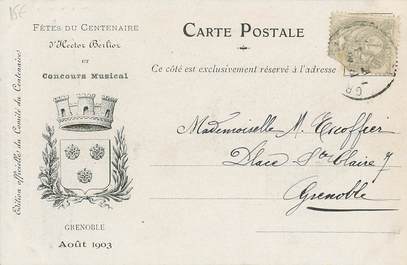 15€
FÊTES DU CENTENAIRE
d'Hector Berlioz
ET
CONCOURS MUSICAL
Edition officielle du Comité du Centenaire
GRENOBLE
AOÛT 1903
CARTE POSTALE
Ce côté est exclusivement réservé à l'adresse
Mademoiselle M. Escoffier
Place Ste Claire 7
Grenoble